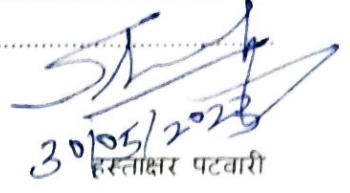 30/05/2023
हस्ताक्षर पटवारी